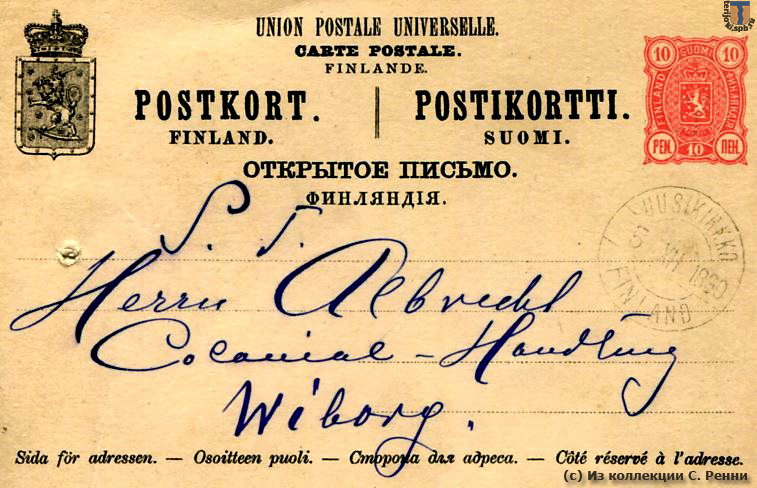 terijoki.spb.ru
UNION POSTALE UNIVERSELLE.
CARTE POSTALE.
FINLANDE.
POSTKORT. | POSTIKORTTI.
FINLAND. SUOMI.
ОТКРЫТОЕ ПИСЬМО.
ФИНЛЯНДІЯ.
10 SUOMI 10
FINLAND
PEN. 10 ПЕН.
UUSIKIRKKO
5 VII 1890
FINLAND
S. T.
Herrn Albrecht
Colonial-Handling
Wiborg.
Sida för adressen. — Osoitteen puoli. — Сторона для адреса. — Côté réservé à l'adresse.
(c) Из коллекции С. Ренни